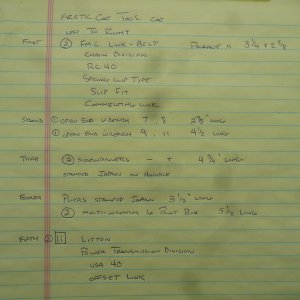 ARCTIC CAT TOOL CAT
LEFT TO RIGHT
FIRST ② FMC LINK-BELT PACKAGE IS 3 1/4 x 2 3/8
CHAIN DIVISION
RC 40
SPRING CLIP TYPE
SLIP FIT
CONNECTING LINK
SECOND ① OPEN END WRENCH 7, 8 LONG
① OPEN END WRENCH 9, 11 4 1/2 LONG
THIRD SCREWDRIVERS - + 4 3/4" LONG
STAMPED JAPAN ON HANDLE
FOURTH PLIERS STAMPED JAPAN 5 1/2" LONG
② MULTI-WRENCH 6 POINT BOX 5 1/2 LONG
FIFTH ② Li LITTON
POWER TRANSMISSION DIVISION
USA 40
OFFSET LINK